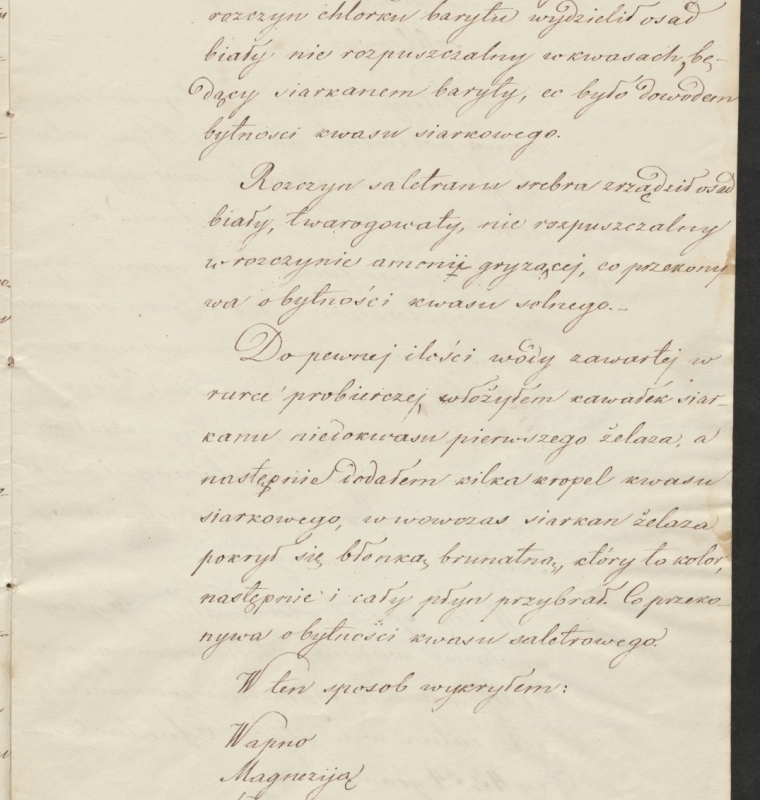 rozczyn chlorku barytu wydzielił osad
biały nie rozpuszczalny w kwasach, bę-
dący siarkanem baryty, co było dowodem
bytnosci kwasu siarkowego.
Rozczyn saletranu srebra zrządził osad
biały, twarogowaty, nie rozpuszczalny
w rozczynie amonii gryzącej, co przekony
wa o bytności kwasu solnego.-
Do pewnej ilości wody zawartej w
rurce probierczej, włożyłem kawałek siar-
kanu niedokwasu pierwszego żelaza, a
następnie dodałem kilka kropel kwasu
siarkowego, w wowczas siarkan żelaza
pokrył się błonką brunatną, który to kolor,
następnie i cały płyn przybrał. Co przeko-
nywa o bytności kwasu saletrowego.
W ten sposob wykryłem:
Wapno
Magneziją